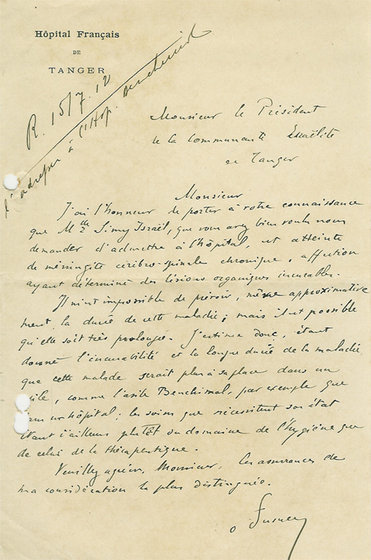 Hôpital Français
DE
TANGER
R. 15/7.12
s'adresser à l'Hôp.
Monsieur le Président
de la Communauté Israélite
de Tanger
Monsieur
J'ai l'honneur de porter à votre connaissance
que Mde Simy Israël, que vous avez bien voulu nous
demander d'admettre à l'hôpital, est atteinte
de méningite cérébro-spinale chronique, affection
ayant déterminé des lésions organiques incurables.
Il m'est impossible de prévoir, même approximative
ment la durée de cette maladie; mais il est possible
qu'elle soit très prolongée. J'estime donc, étant
donné l'incurabilité et la longue durée de la maladie
que cette malade serait plus à sa place dans un
asile, comme l'asile Benchimol, par exemple que
dans un hôpital: les soins que nécessitent son état
étant d'ailleurs plutôt du domaine de l'hygiène que
de celui de la thérapeutique.
Veuillez agréer, Monsieur, les assurances de
ma considération la plus distinguée.